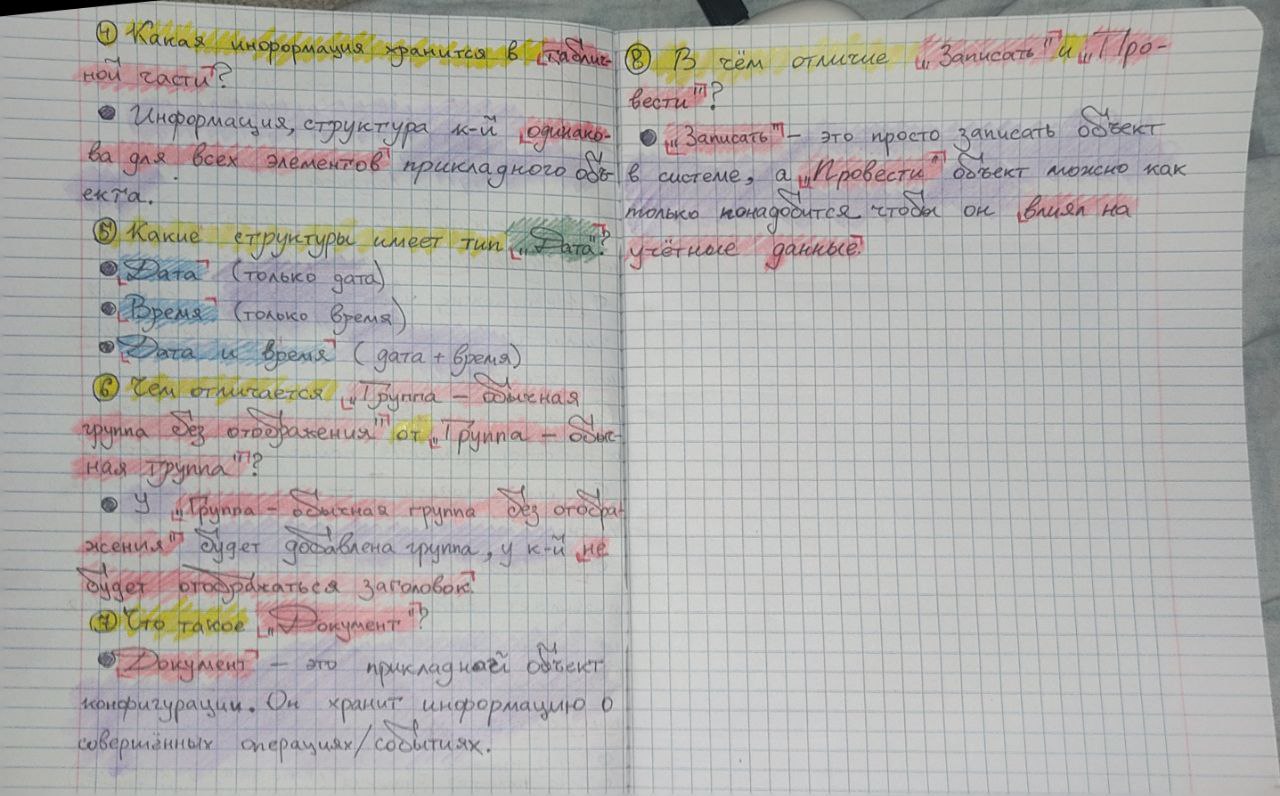 ④ Какая информация хранится в [таблич-
ной части]?
● Информация, структура к-й [одинако-
ва для всех элементов] прикладного объ-
екта.
⑤ Какие структуры имеет тип [„Дата"]?
● [Дата] (только дата)
● [Время] (только время)
● [Дата и время] (дата + время)
⑥ Чем отличается [„Группа – обычная
группа без отображения"] от [„Группа – обыч-
ная группа"]?
● У [„Группа – обычная группа без отобра-
жения"] будет добавлена группа, у к-й [не
будет отображаться заголовок].
⑦ Что такое [„Документ"]?
● [Документ] – это прикладной объект
конфигурации. Он хранит информацию о
совершённых операциях/событиях.
⑧ В чём отличие [„Записать"] и [„Про-
вести"]?
● [„Записать"] – это просто записать объект
в системе, а [„Провести"] объект можно как
только понадобится чтобы он [влиял на
учётные данные].